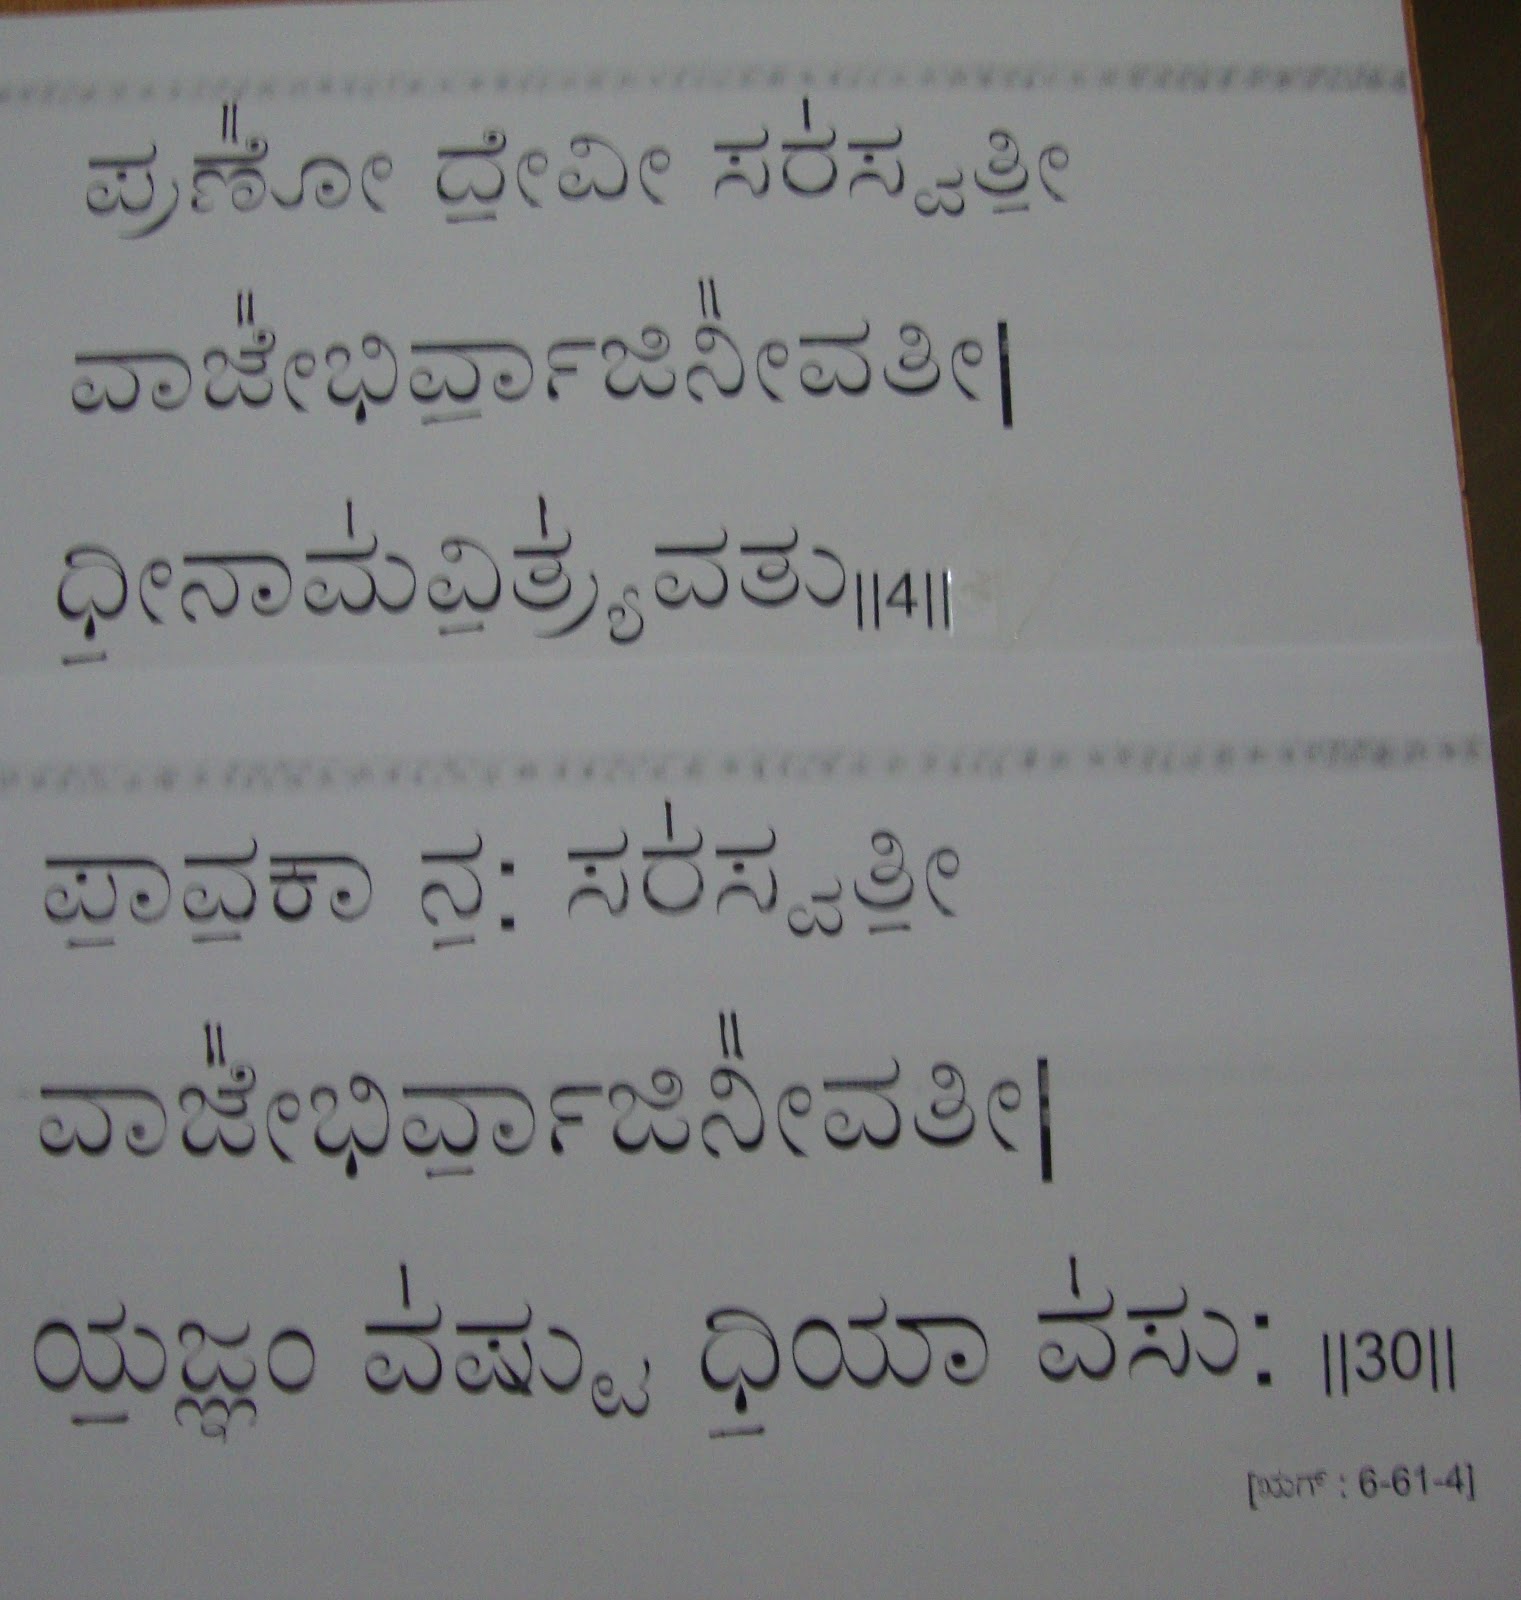 ಪ್ರಣೋ᳚ ದೇ॒ವೀ ಸರ॑ಸ್ವತೀ॒
ವಾಜೇ᳚ಭಿರ್ವಾ॒ಜಿನೀ᳚ವತೀ|
ಧೀ॒ನಾಮ॑ವಿ॒ತ್ರ್ಯ॑ವತು||4||
ಪಾ॒ವ॒ಕಾ ನ॒: ಸರ॑ಸ್ವತೀ॒
ವಾಜೇ᳚ಭಿರ್ವಾ॒ಜಿನೀ᳚ವತೀ|
ಯ॒ಜ್ಞಂ ವ॑ಷ್ಟು ಧಿ॒ಯಾ ವ॑ಸು: ||30||
[ಋಗ್ : 6-61-4]